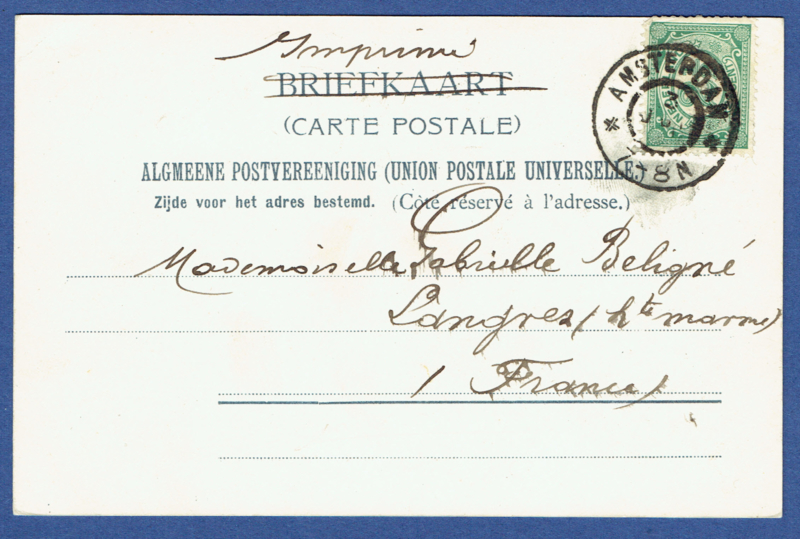 Imprimé
BRIEFKAART
(CARTE POSTALE)
ALGMEENE POSTVEREENIGING (UNION POSTALE UNIVERSELLE.)
Zijde voor het adres bestemd. (Côté réservé à l'adresse.)
Mademoiselle Gabrielle Beligné
Langres (hte marne)
(France)
AMSTERDAM
7-8N